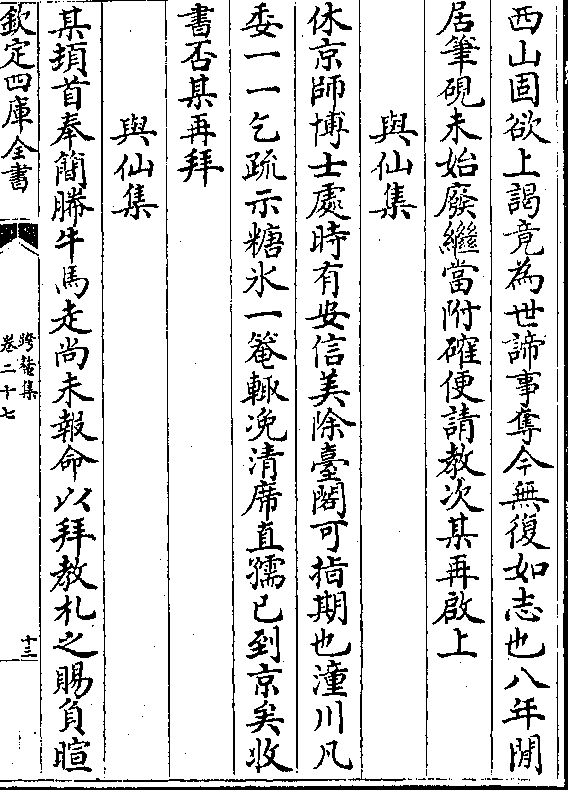 西山固欲上謁竟為世諦事奪今無復如志也八年閒
居筆硯未始廢繼當附確便請教次某再啟上
與仙集
休京師博士處時有安信美除臺閣可指期也潼川凡
委一一乞疏示糖氷一菴輙浼清席直孺已到京矣收
書否某再拜
與仙集
某頓首奉簡勝牛馬走尚未報命以拜教札之賜負暄
欽定四庫全書
跨鼇集
卷二十七
十三